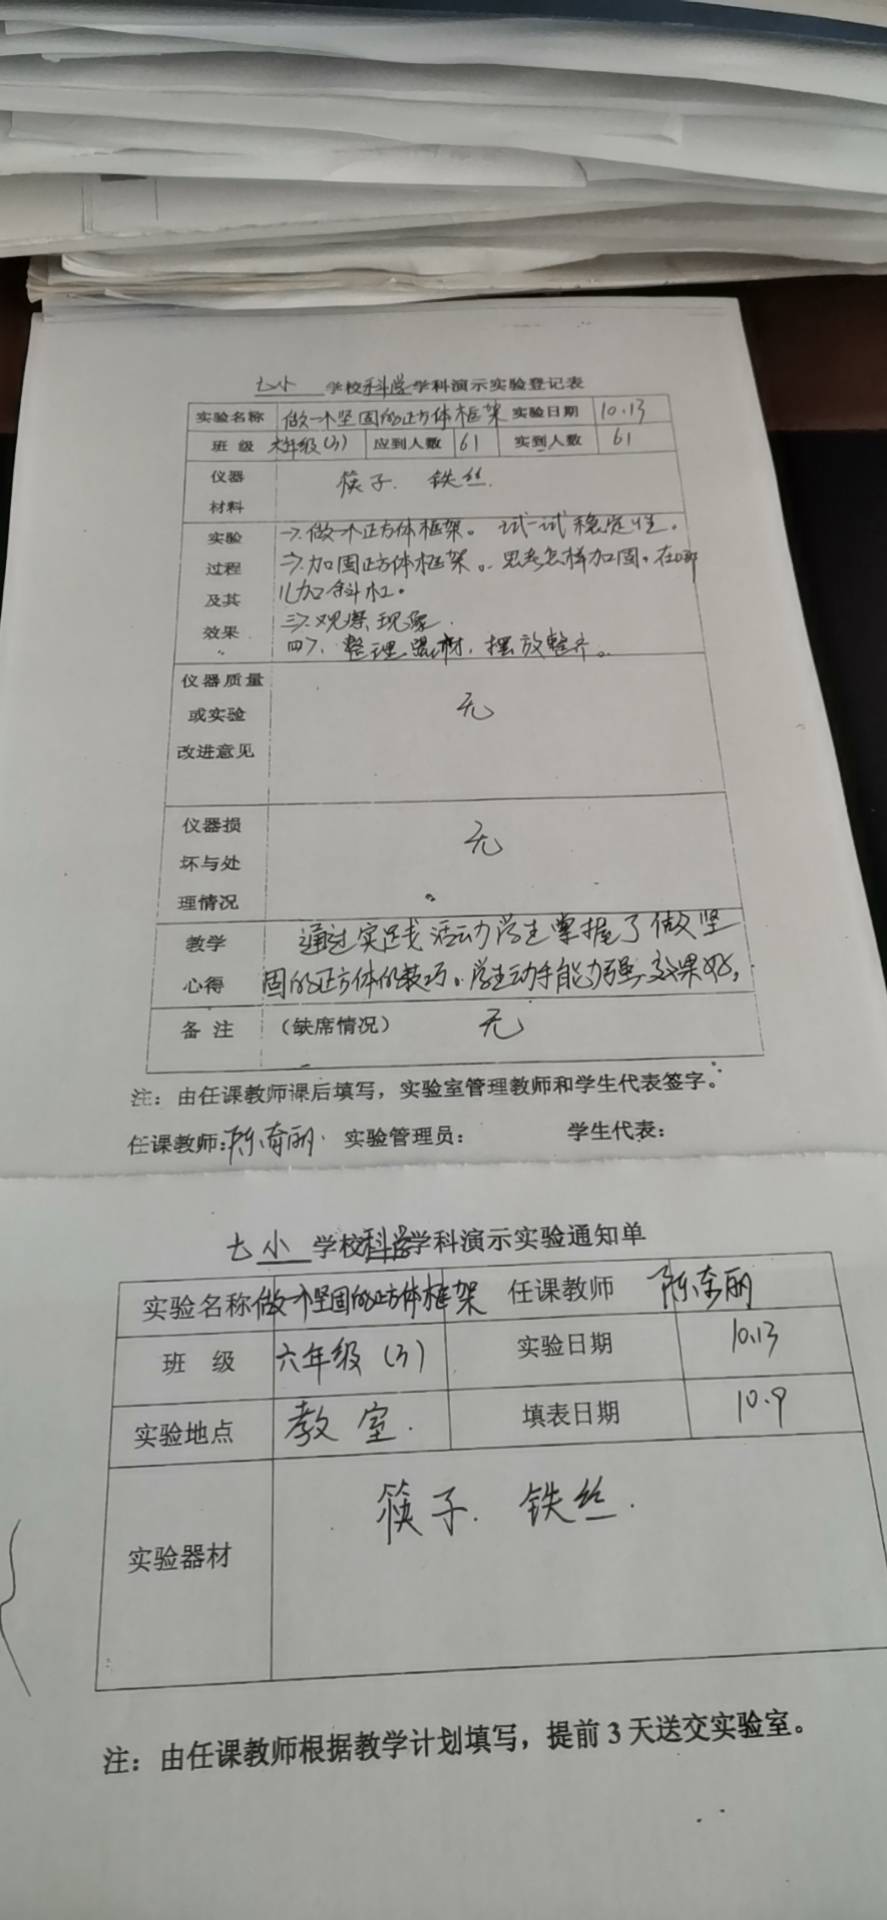 七小 学校科学学科演示实验登记表
实验名称 做一个坚固的正方体框架 实验日期 10.13
班 级 六年级(3) 应到人数 61 实到人数 61
仪器 筷子. 铁丝.
材料
实验 一>.做一个正方体框架。试一试稳定性。
过程 二>.加固正方体框架。思考怎样加固。在哪
及其 儿加斜杠。
效果 三>.观察现象.
四>.整理器材,摆放整齐。
仪器质量
或实验 无
改进意见
仪器损
坏与处 无
理情况
教学 通过实践活动学生掌握了做坚
心得 固的正方体的技巧。学生动手能力强,效果好,
备 注 (缺席情况) 无
注:由任课教师课后填写,实验室管理教师和学生代表签字。
任课教师: 陈 丽. 实验管理员: 学生代表:
七小 学校科学学科演示实验通知单
实验名称 做一个坚固的正方体框架 任课教师 陈 丽
班 级 六年级(3) 实验日期 10.13
实验地点 教室. 填表日期 10.9
实验器材 筷子. 铁丝.
注:由任课教师根据教学计划填写,提前3天送交实验室。